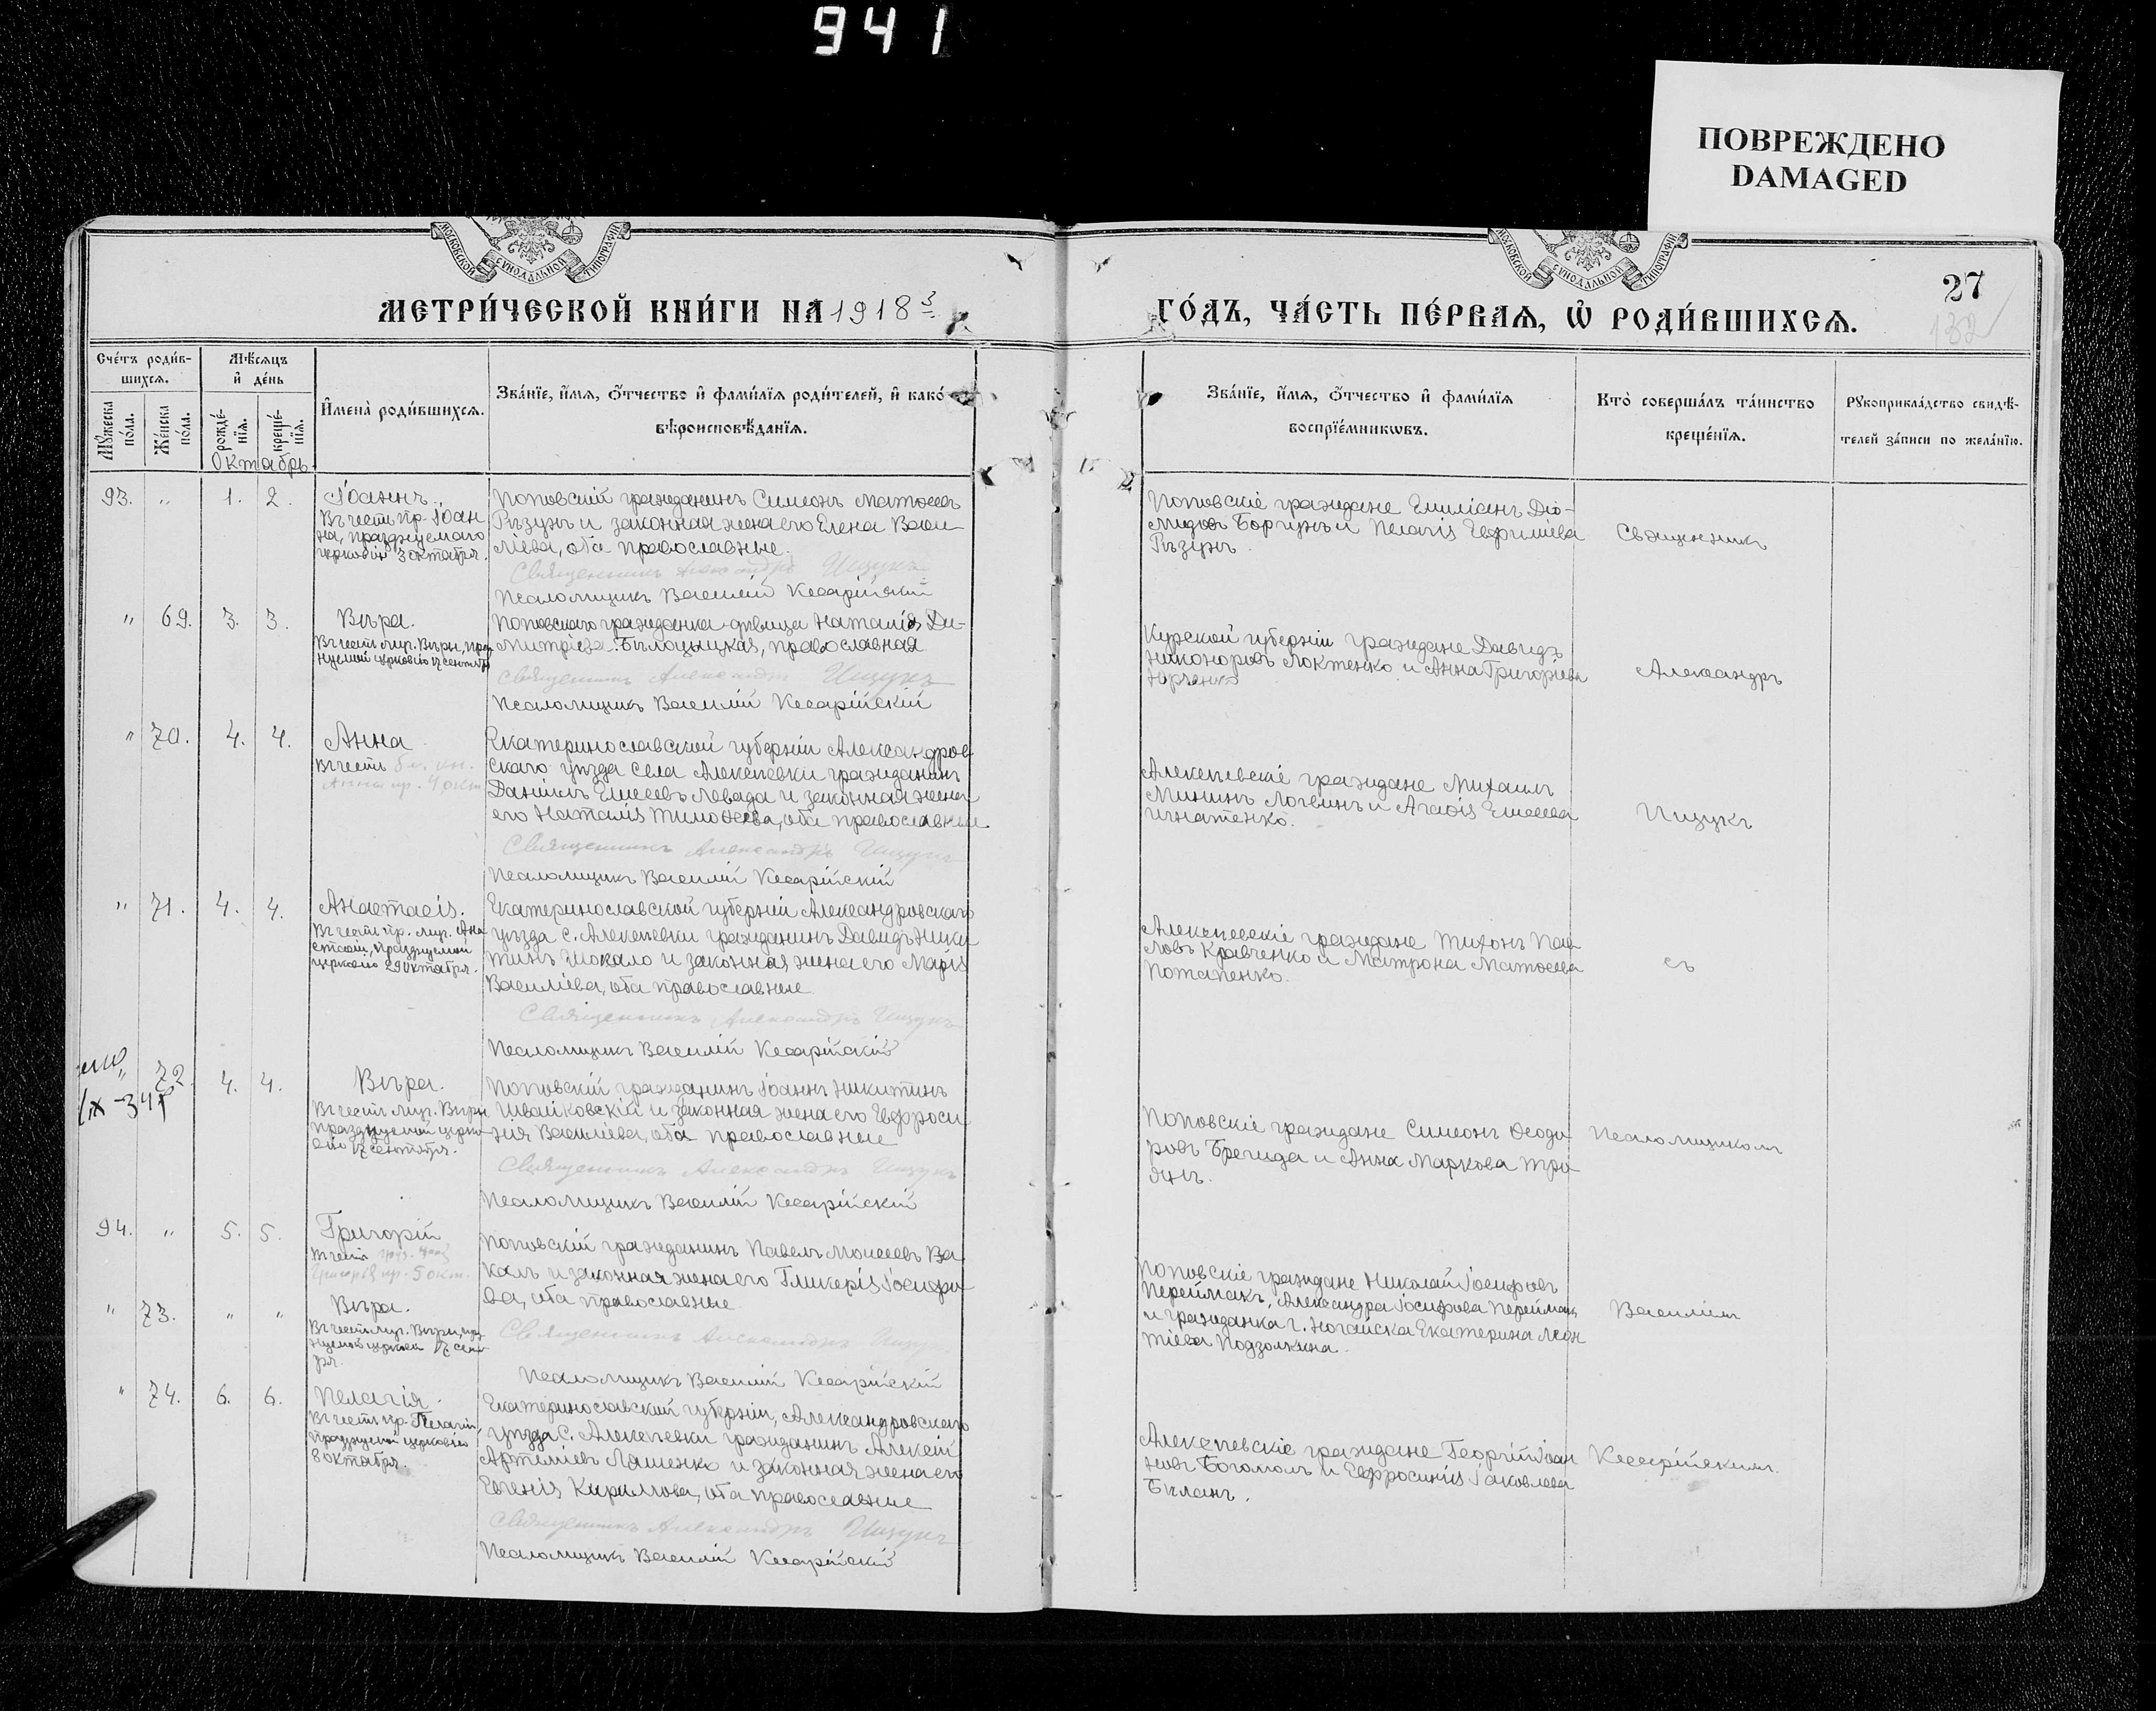 941
ПОВРЕЖДЕНО
DAMAGED
МОСКОВСКОЙ СѴНОДАЛЬНОЙ ТИПОГРАФІИ
МОСКОВСКОЙ СѴНОДАЛЬНОЙ ТИПОГРАФІИ
27
132
МЕТРИ́ЧЕСКОЙ КНИ́ГИ НА 1918 3
ГО́ДЪ, ЧА́СТЬ ПЕ́РВАѦ, Ѡ҆ РОДИ́ВШИХСѦ.
Сче́тъ роди́в-
шихсѧ.
Мꙋ́жеска по́ла.
Же́нска по́ла.
Мѣ́сѧцъ
и҆ де́нь
рожде́-
нїѧ.
креще́-
нїѧ.
Октябрь
И҆мена̀ роди́вшихсѧ.
Зва́нїе, и҆́мѧ, ѻ҆́тчество и҆ фами́лїѧ роди́телей, и҆ како́-
вѣ́роисповѣ́данїѧ.
Зва́нїе, и҆́мѧ, ѻ҆́тчество и҆ фами́лїѧ
воспрїе́мникѡвъ.
Кто̀ соверша́лъ та́инство
креще́нїѧ.
Рꙋкоприкла́дство свидѣ́-
телей за́писи по жела́нїю.
93. " 1. 2.
Іоаннъ.
Въ честь пр. Іоан
на, празднуемаго
церковію 3 октября.
Поповскій гражданинъ Симеонъ Матѳеевъ
Рѣзунъ и законная жена его Елена Васи-
ліева, оба православные.
Священникъ Александръ Ищукъ
Псаломщикъ Василій Кесарійскій
Поповскіе граждане Емиліанъ Діо-
мидовъ Боргунъ и Пелагія
Рѣзунъ.
Священникъ
" 69. 3. 3.
Вѣра.
Въ честь муч. Вѣры, праз
нуемой церковію 17 сентября
Поповскаго гражданка дѣвица Наталія Ди-
митріева Бѣлоцыцкая, православная
Священникъ Александръ Ищукъ
Псаломщикъ Василій Кесарійскій
Курской губерніи граждане Давидъ
Никоноровъ Локтенко и Анна Григоріева
Юрченко
Александръ
" 70. 4. 4.
Анна
Въ честь бл. кн.
Анны пр. 4 окт.
Екатеринославской губерніи Александров
скаго уѣзда села Алексѣевки гражданинъ
Даніилъ Елисеевъ Левада и законная жена
его Наталія Тимоѳеева, оба православные
Священникъ Александръ Ищукъ
Псаломщикъ Василій Кесарійскій
Алексѣевскіе граждане Михаилъ
Мининъ Логвинъ и Агаѳія Елисеева
Игнатенко.
Ищукъ
" 71. 4. 4.
Анастасія.
Въ честь пр. муч. Ана
стасіи, празднуемой
церковію 29 октября.
Екатеринославской губерніи Александровскаго
уѣзда с. Алексѣевки гражданинъ Давидъ Ники
тинъ Шокало и законная жена его Марія
Василіева, оба православные
Священникъ Александръ Ищукъ
Псаломщикъ Василій Кесарійскій
Алексѣевскіе граждане Тихонъ Пав
ловъ Кравченко и Матрона Матѳеева
Потапенко.
съ
" 72. 4. 4.
Вѣра.
Въ честь муч. Вѣры
празднуемой церко-
вію 17 сентября.
Поповскій гражданинъ Іоаннъ Никитинъ
Швайковскій и законная жена его Ефроси
нія Василіева, оба православные
Священникъ Александръ Ищукъ
Псаломщикъ Василій Кесарійскій
Поповскіе граждане Симеонъ Ѳеодо
ровъ Брегида и Анна Маркова Тро
янъ.
Псаломщикомъ
94. " 5. 5.
Григорій
Въ честь
Григорія пр. 5 окт.
Поповскій гражданинъ Павелъ Моисеевъ Ва
калъ и законная жена его Гликерія Іосифо
ва, оба православные
" 73. " "
Вѣра.
Въ честь муч. Вѣры, праз
нуемой церковію 17 сентя
ря.
Священникъ Александръ Ищукъ
Псаломщикъ Василій Кесарійскій
Поповскіе граждане Николай Іосифовъ
Переймакъ, Александра Іосифова Переймакъ
и гражданка г. Ногайска Екатерина Леон
тіева Подзолкина.
Василіемъ
" 74. 6. 6.
Пелагія.
Въ честь пр. Пелагіи,
празднуемой церковію
8 октября.
Екатеринославской губерніи, Александровскаго
уѣзда с. Алексѣевки гражданинъ Алексій
Артеміевъ Ляшенко и законная жена его
Евгенія Кирилова, оба православные
Священникъ Александръ Ищукъ
Псаломщикъ Василій Кесарійскій
Алексѣевскіе граждане Георгій Іоан
новъ Богомолъ и Ефросинія Іаковлева
Бѣланъ.
Кесарійскимъ.